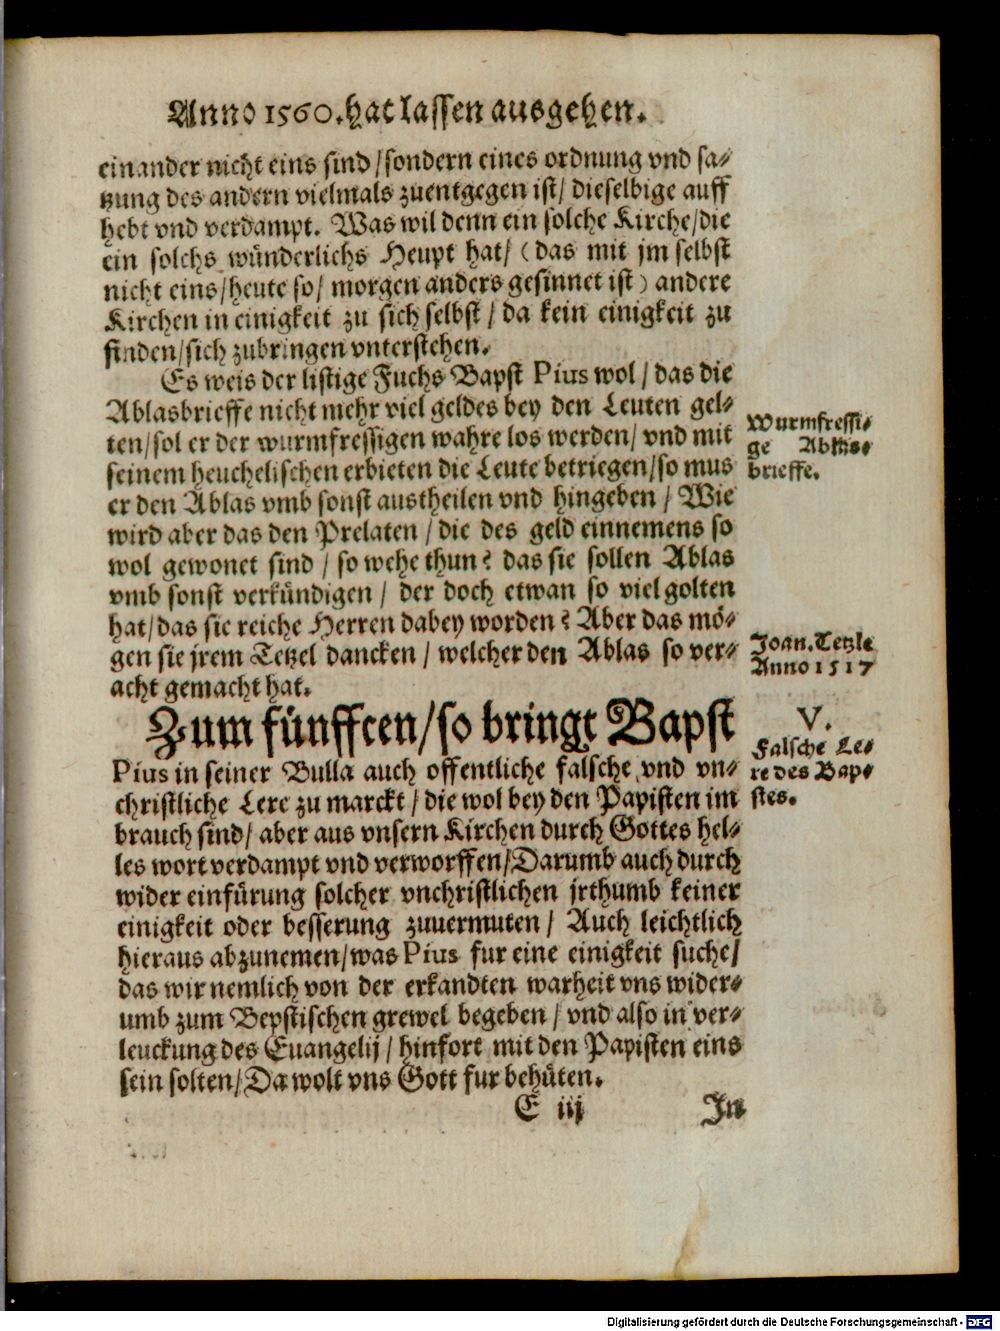 Anno 1560. hat lassen ausgehen.
einander nicht eins sind / sondern eines ordnung vnd sa⸗
tzung des andern vielmals zuentgegen ist / dieselbige auff
hebt vnd verdampt. Was wil denn ein solche Kirche / die
ein solchs wünderlichs Heupt hat / (das mit jm selbst
nicht eins / heute so / morgen anders gesinnet ist) andere
Kirchen in einigkeit zu sich selbst / da kein einigkeit zu
finden / sich zubringen vnterstehen.
Es weis der listige Fuchs Bapst Pius wol / das die
Ablasbrieffe nicht mehr viel geldes bey den Leuten gel⸗
ten / sol er der wurmfressigen wahre los werden / vnd mit
seinem heuchelischen erbieten die Leute betriegen / so mus
er den Ablas vmb sonst austheilen vnd hingeben / Wie
wird aber das den Prelaten / die des geld einnemens so
wol gewonet sind / so wehe thun? das sie sollen Ablas
vmb sonst verkündigen / der doch etwan so viel golten
hat / das sie reiche Herren dabey worden? Aber das mö⸗
gen sie jrem Tetzel dancken / welcher den Ablas so ver⸗
acht gemacht hat.
Wurmfressi⸗
ge Ablas⸗
brieffe.
Joan. Tetzle
Anno 1517
Zum fünfften / so bringt Bapst
Pius in seiner Bulla auch offentliche falsche vnd vn⸗
christliche Lere zu marckt / die wol bey den Papisten im
brauch sind / aber aus vnsern Kirchen durch Gottes hel⸗
les wort verdampt vnd verworffen / Darumb auch durch
wider einfürung solcher vnchristlichen jrthumb keiner
einigkeit oder besserung zuuermuten / Auch leichtlich
hieraus abzunemen / was Pius fur eine einigkeit suche /
das wir nemlich von der erkandten warheit vns wider⸗
umb zum Bepstischen grewel begeben / vnd also in ver⸗
leuckung des Euangelij / hinfort mit den Papisten eins
sein solten / Da wolt vns Gott fur behüten.
V.
Falsche Le⸗
re des Bap⸗
stes.
E iij
In
Digitalisierung gefördert durch die Deutsche Forschungsgemeinschaft - DFG